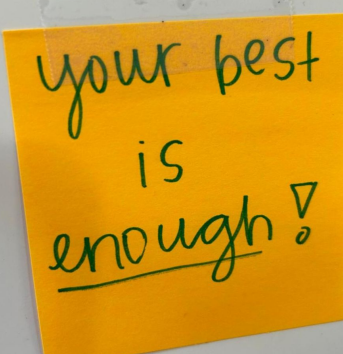 your best
is
enough!